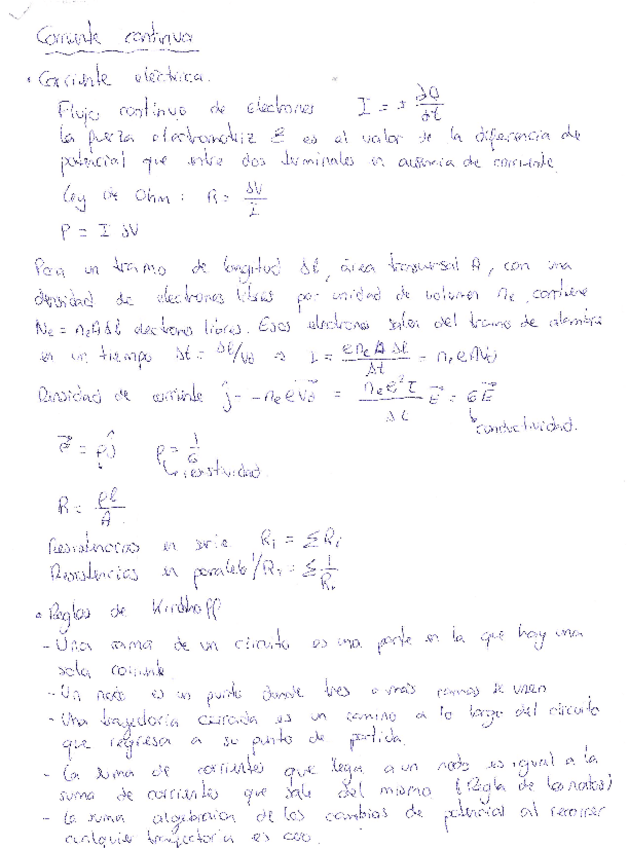 Corriente continua
• Corriente eléctrica.
Flujo continuo de electrones I = ± ∂Q/∂t
La fuerza electromotriz ε es el valor de la diferencia de
potencial que entre dos terminales en ausencia de corriente.
Ley de Ohm: R = ΔV/I
P = I ΔV
Para un tramo de longitud Δl, área transversal A, con una
densidad de electrones libres por unidad de volumen ne, contiene
Ne = neAΔl electrones libres. Esos electrones salen del tramo de alambre
en un tiempo Δt = Δl/vd ⇒ I = e ne A Δl/Δt = ne e A vd
Densidad de corriente j = -ne e vd = E = σE
conductividad.
E = ρj ρ = 1/σ
resistividad.
R = ρl/A
Resistencias en serie = ΣRi
Resistencias en paralelo = Σ 1/Ri
• Reglas de Kirchhoff
- Una rama de un circuito es una parte en la que hay una
sola corriente.
- Un nodo es un punto donde tres o más ramas se unen
- Una trayectoria cerrada es un camino a lo largo del circuito
que regresa a su punto de partida.
- La suma de corrientes que llega a un nodo es igual a la
suma de corrientes que sale del mismo (Regla de los nodos)
- La suma algebraica de los cambios de potencial al recorrer
cualquier trayectoria es cero.